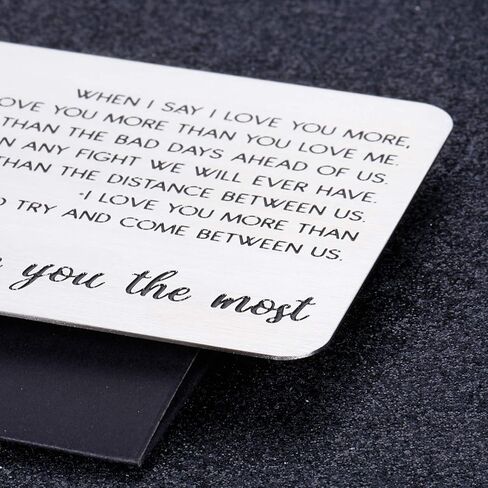 WHEN I SAY I LOVE YOU MORE,
LOVE YOU MORE THAN YOU LOVE ME.
THAN THE BAD DAYS AHEAD OF US.
ANY FIGHT WE WILL EVER HAVE.
THAN THE DISTANCE BETWEEN US.
-I LOVE YOU MORE THAN
TRY AND COME BETWEEN US.
you the most